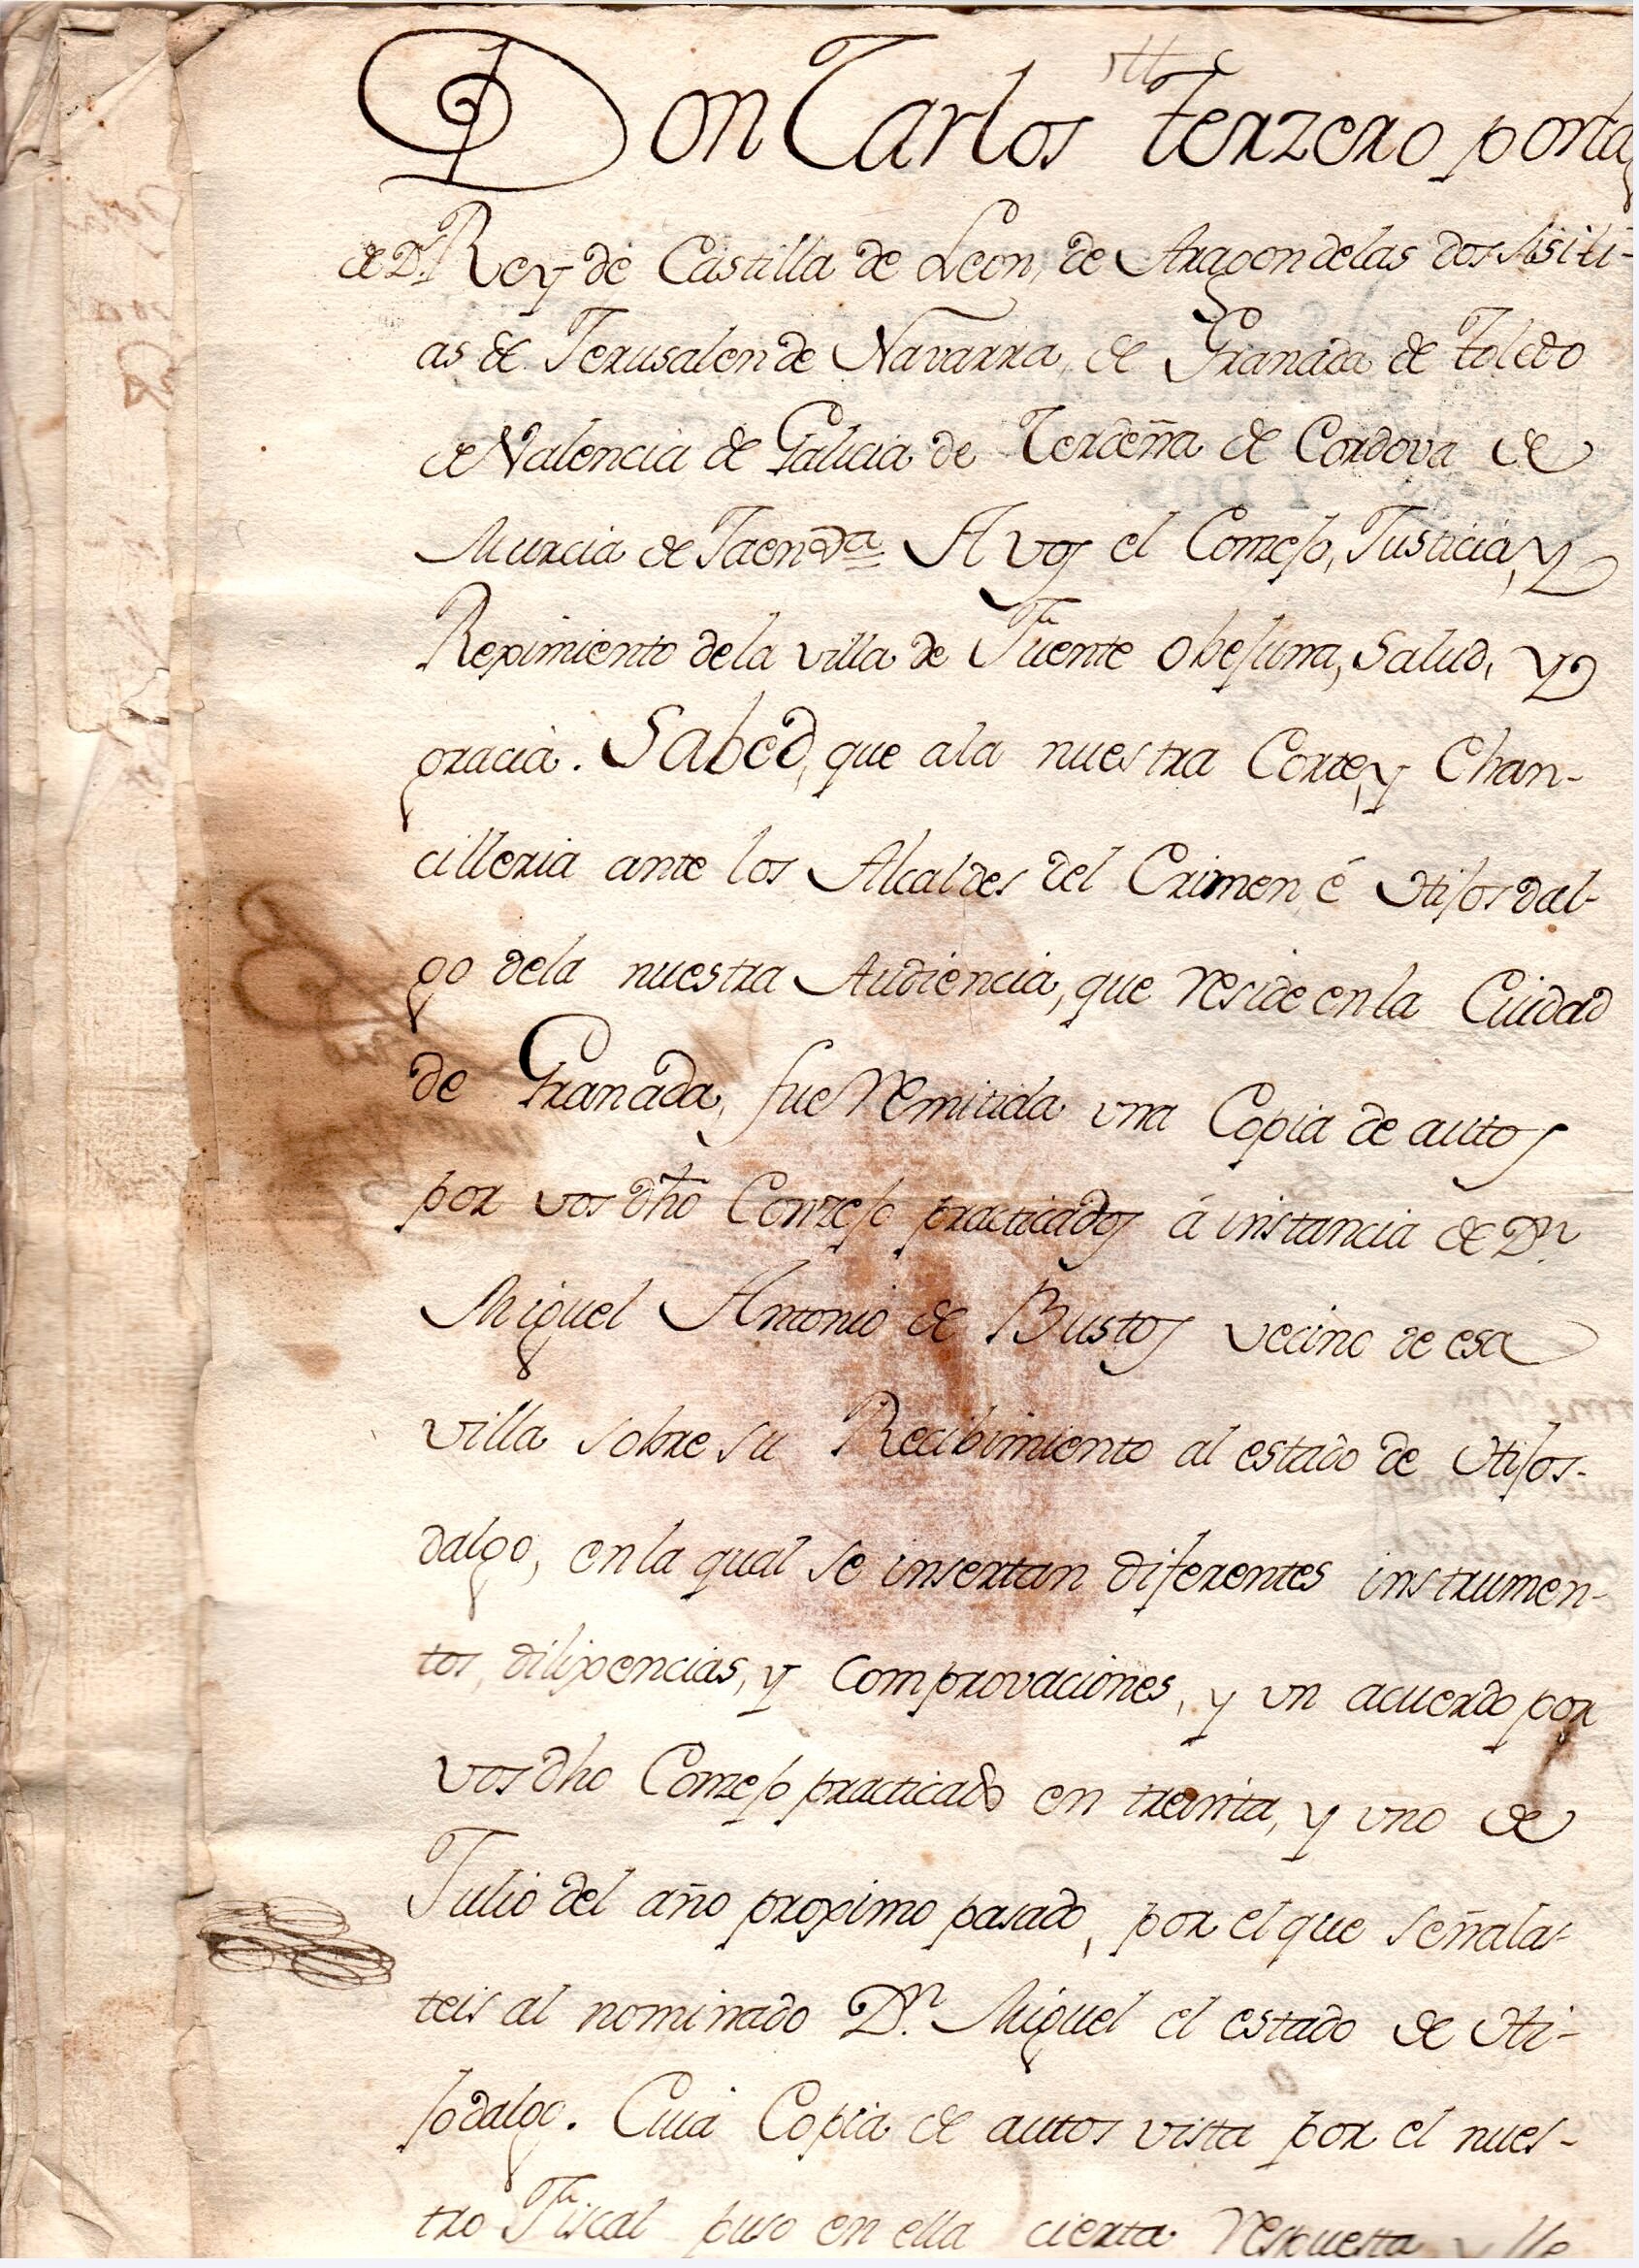 Don Carlos terzero por la g
de D.s Rey de Castilla de Leon, de Aragon delas dos Sisili-
as de Jerusalen de Navarra, de Granada de Toledo
de Valencia de Galicia de Zerdeña de Cordova de
Murcia de Jaen &a A vos el Conzejo, Justicia, y
Reximiento dela villa de Fuente obejuna, Salud, y
gracia. Sabed, que ala nuestra Corte, y Chan-
cilleria ante los Alcaldes del Crimen, é Hijosdal-
go dela nuestra Audiencia, que reside en la Ciudad
de Granada, fue remitida una Copia de autos
por vos dho Conzejo practicados á instancia de Dn.
Miguel Antonio de Bustos vecino de esa
villa sobre su Recibimiento al estado de Hijos-
dalgo, en la qual se insertan diferentes instrumen-
tos, dilixencias, y comprovaciones, y un acuerdo por
vos dho Conzejo practicado en treinta, y uno de
Julio del año proximo pasado, por el que señalas-
teis al nominado Dn. Miguel el estado de Hi-
jodalgo. Cuia Copia de autos vista por el nues-
tro Fiscal puso en ella cierta respuesta